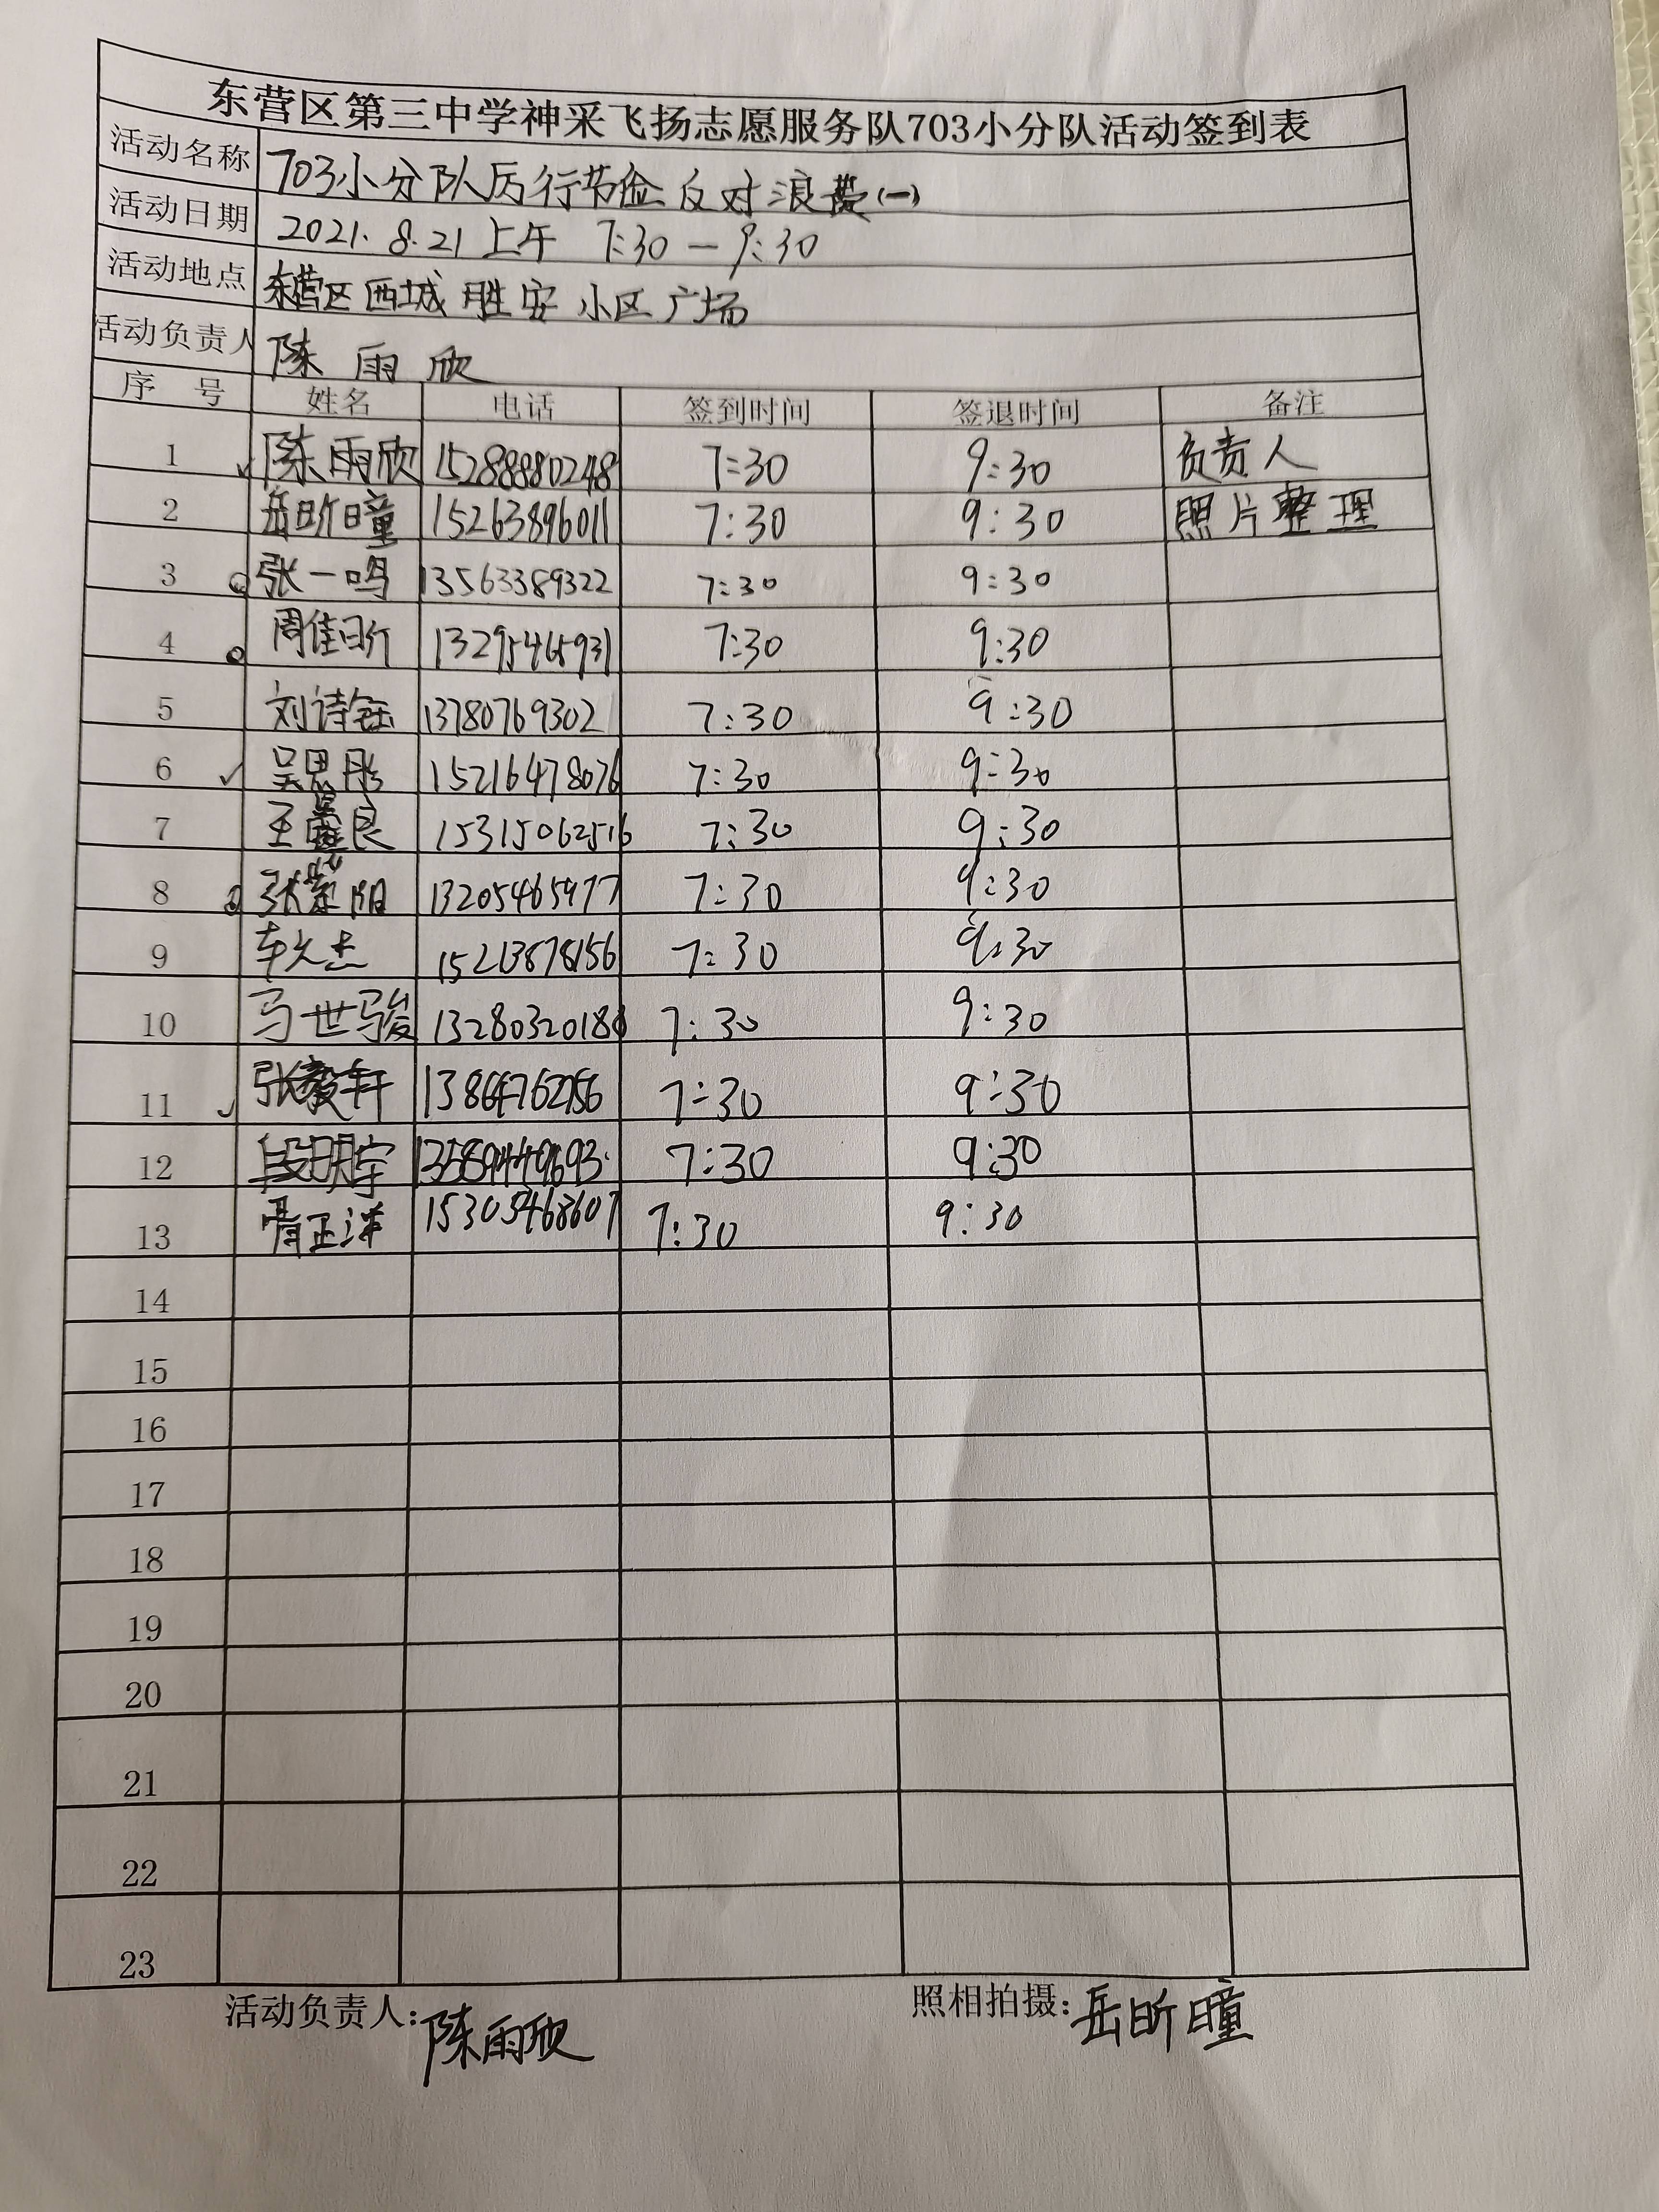 东营区第三中学神采飞扬志愿服务队703小分队活动签到表
活动名称 703小分队厉行节俭反对浪费(一)
活动日期 2021.8.21上午 7:30—9:30
活动地点 东营区西城胜安小区广场
活动负责人 陈雨欣
序号 姓名 电话 签到时间 签退时间 备注
1 陈雨欣 15288880248 7:30 9:30 负责人
2 岳昕曈 15263896011 7:30 9:30 照片整理
3 张一鸣 13563389322 7:30 9:30
4 周佳昕 13295465931 7:30 9:30
5 刘诗钰 13780769302 7:30 9:30
6 吴思彤 15216478076 7:30 9:30
7 王 良 15315062516 7:30 9:30
8 张 阳 13205465977 7:30 9:30
9 车久杰 15213878156 7:30 9:30
10 马世骏 7:30 9:30
11 张毅轩 7:30 9:30
12 段明宇 7:30 9:30
13 正洋 15305468607 7:30 9:30
14
15
16
17
18
19
20
21
22
23
活动负责人：陈雨欣 照相拍摄：岳昕曈